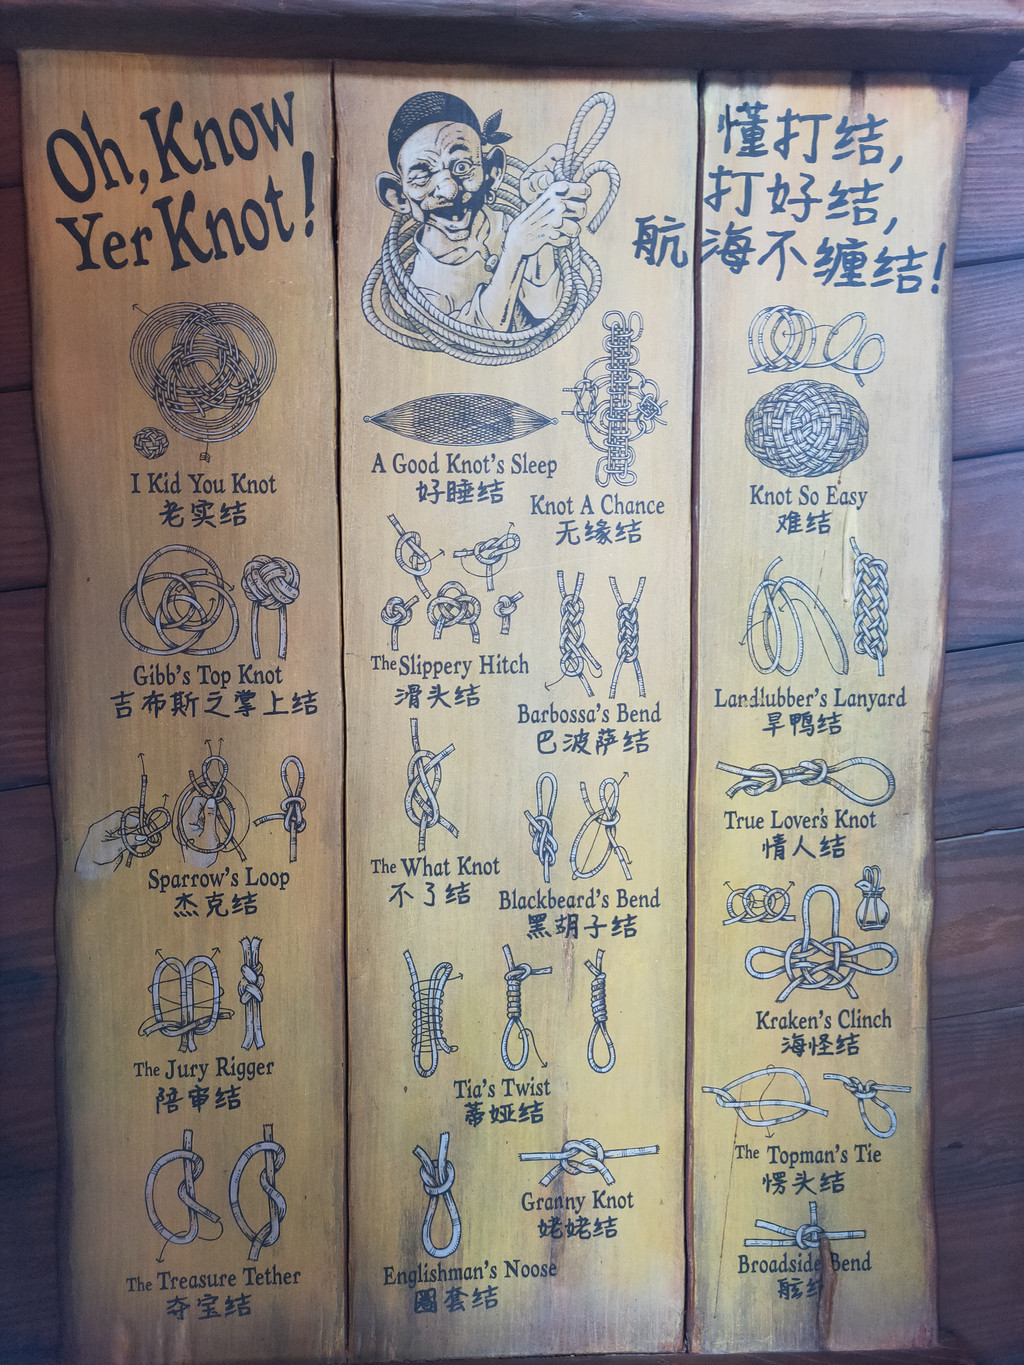 Oh, Know
Yer Knot!
懂打结,
打好结,
航海不缠结!
I Kid You Knot
老实结
Gibb's Top Knot
吉布斯之掌上结
Sparrow's Loop
杰克结
The Jury Rigger
陪审结
The Treasure Tether
夺宝结
A Good Knot's Sleep
好睡结
Knot A Chance
无缘结
The Slippery Hitch
滑头结
Barbossa's Bend
巴波萨结
The What Knot
不了结
Blackbeard's Bend
黑胡子结
Tia's Twist
蒂娅结
Granny Knot
姥姥结
Englishman's Noose
圈套结
Knot So Easy
难结
Landlubber's Lanyard
旱鸭结
True Lover's Knot
情人结
Kraken's Clinch
海怪结
The Topman's Tie
愣头结
Broadside Bend
舷结